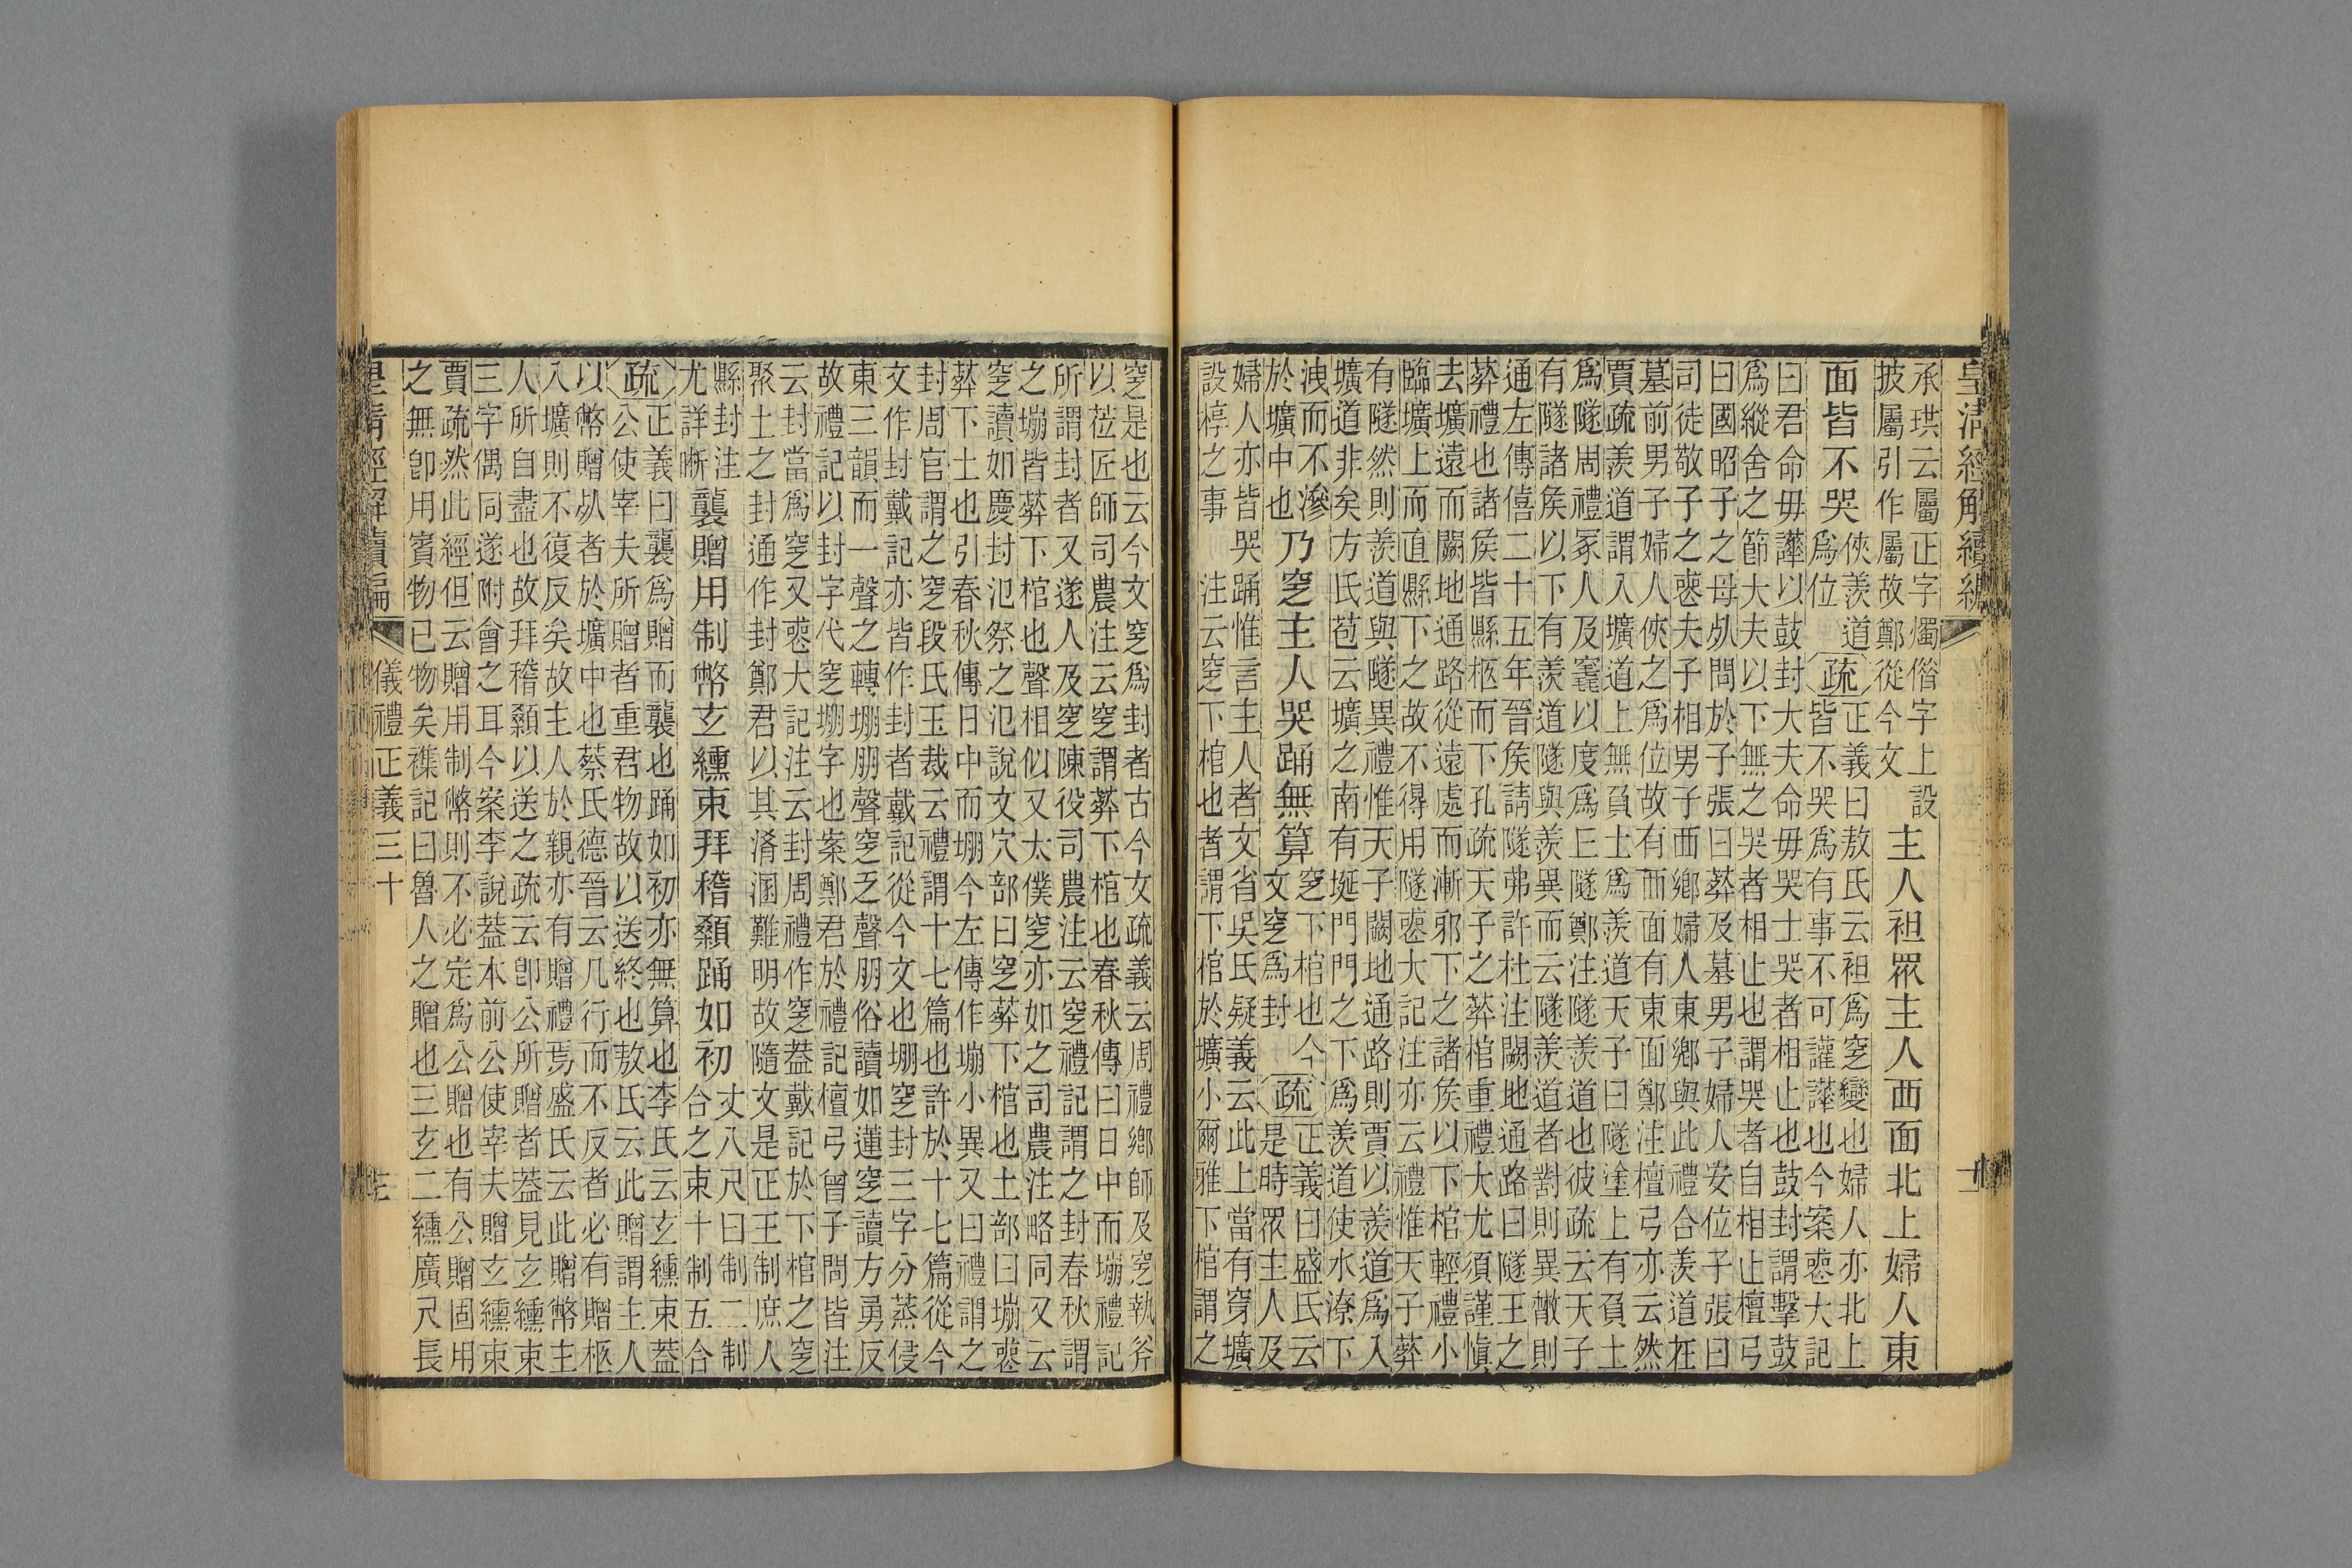 皇清經解續編
承珙云屬正字燭俗字上設
披屬引作屬故鄭從今文
主人袒眾主人西面北上婦人東
面皆不哭
俠羨道
爲位
疏
正義曰敖氏云袒爲窆變也婦人亦北上
皆不哭爲有事不可讙譁也今案喪大記
曰君命毋譁以鼓封大夫命毋哭士哭者相止也鼓封謂擊鼓
爲縱舍之節大夫以下無之哭者相止也謂哭者自相止檀弓
曰國昭子之母死問於子張曰葬及墓男子婦人安位子張曰
司徒敬子之喪夫子相男子西鄉婦人東鄉與此禮合羨道在
墓前男子婦人俠之爲位故有西面有東面鄭注檀弓亦云然
賈疏羨道謂入壙道上無負土爲羨道天子曰隧塗上有負土
爲隧周禮冢人及竁以度爲丘隧鄭注隧羨道也彼疏云天子
有隧諸矦以下有羨道隧與羨異而云隧羨道者對則異散則
通左傳僖二十五年晉矦請隧弗許杜注闕地通路曰隧王之
葬禮也諸矦皆縣柩而下孔疏天子之葬棺重禮大尤須謹愼
去壙遠而闕地通路從遠處而漸邪下之諸矦以下棺輕禮小
臨壙上而直縣下之故不得用隧喪大記注亦云禮惟天子葬
有隧然則羨道與隧異禮惟天子闕地通路則賈以羨道爲入
壙道非矣方氏苞云壙之南有埏門門之下爲羨道使水潦下
洩而不滲
於壙中也
乃窆主人哭踊無算
窆下棺也今
文窆爲封
疏
正義曰盛氏云
是時眾主人及
婦人亦皆哭踊惟言主人者文省吳氏疑義云此上當有穿壙
設楟之事　注云窆下棺也者謂下棺於壙小爾雅下棺謂之
窆是也云今文窆爲封者古今文疏義云周禮鄉師及窆執斧
以莅匠師司農注云窆謂葬下棺也春秋傳曰日中而塴禮記
所謂封者又遂人及窆陳役司農注云窆禮記謂之封春秋謂
之塴皆葬下棺也聲相似又太僕窆亦如之司農注略同又云
窆讀如慶封氾祭之氾說文穴部曰窆葬下棺也土部曰塴喪
葬下土也引春秋傳日中而堋今左傳作塴小異又曰禮謂之
封周官謂之窆段氏玉裁云禮謂十七篇也許於十七篇從今
文作封戴記亦皆作封者戴記從今文也堋窆封三字分蒸侵
東三韻而一聲之轉堋朋聲窆乏聲朋俗讀如蓮窆讀方勇反
故禮記以封字代窆堋字也案鄭君於禮記檀弓曾子問皆注
云封當爲窆又喪大記注云封周禮作窆葢戴記於下棺之窆
聚土之封通作封鄭君以其淆溷難明故隨文是正王制庶人
縣封注
尤詳晣
襲贈用制幣玄纁束拜稽顙踊如初
丈八尺曰制二制
合之束十制五合
疏
正義曰襲爲贈而襲也踊如初亦無算也李氏云玄纁束葢
公使宰夫所贈者重君物故以送終也敖氏云此贈謂主人
以幣贈死者於壙中也蔡氏德晉云凡行而不反者必有贈柩
入壙則不復反矣故主人於親亦有贈禮焉盛氏云此贈幣主
人所自盡也故拜稽顙以送之疏云卽公所贈者葢見玄纁束
三字偶同遂附會之耳今案李說葢本前公使宰夫贈玄纁束
賈疏然此經但云贈用制幣則不必定爲公贈也有公贈固用
之無卽用賓物已物矣襍記曰魯人之贈也三玄二纁廣尺長
皇清經解續編　儀禮正義三十